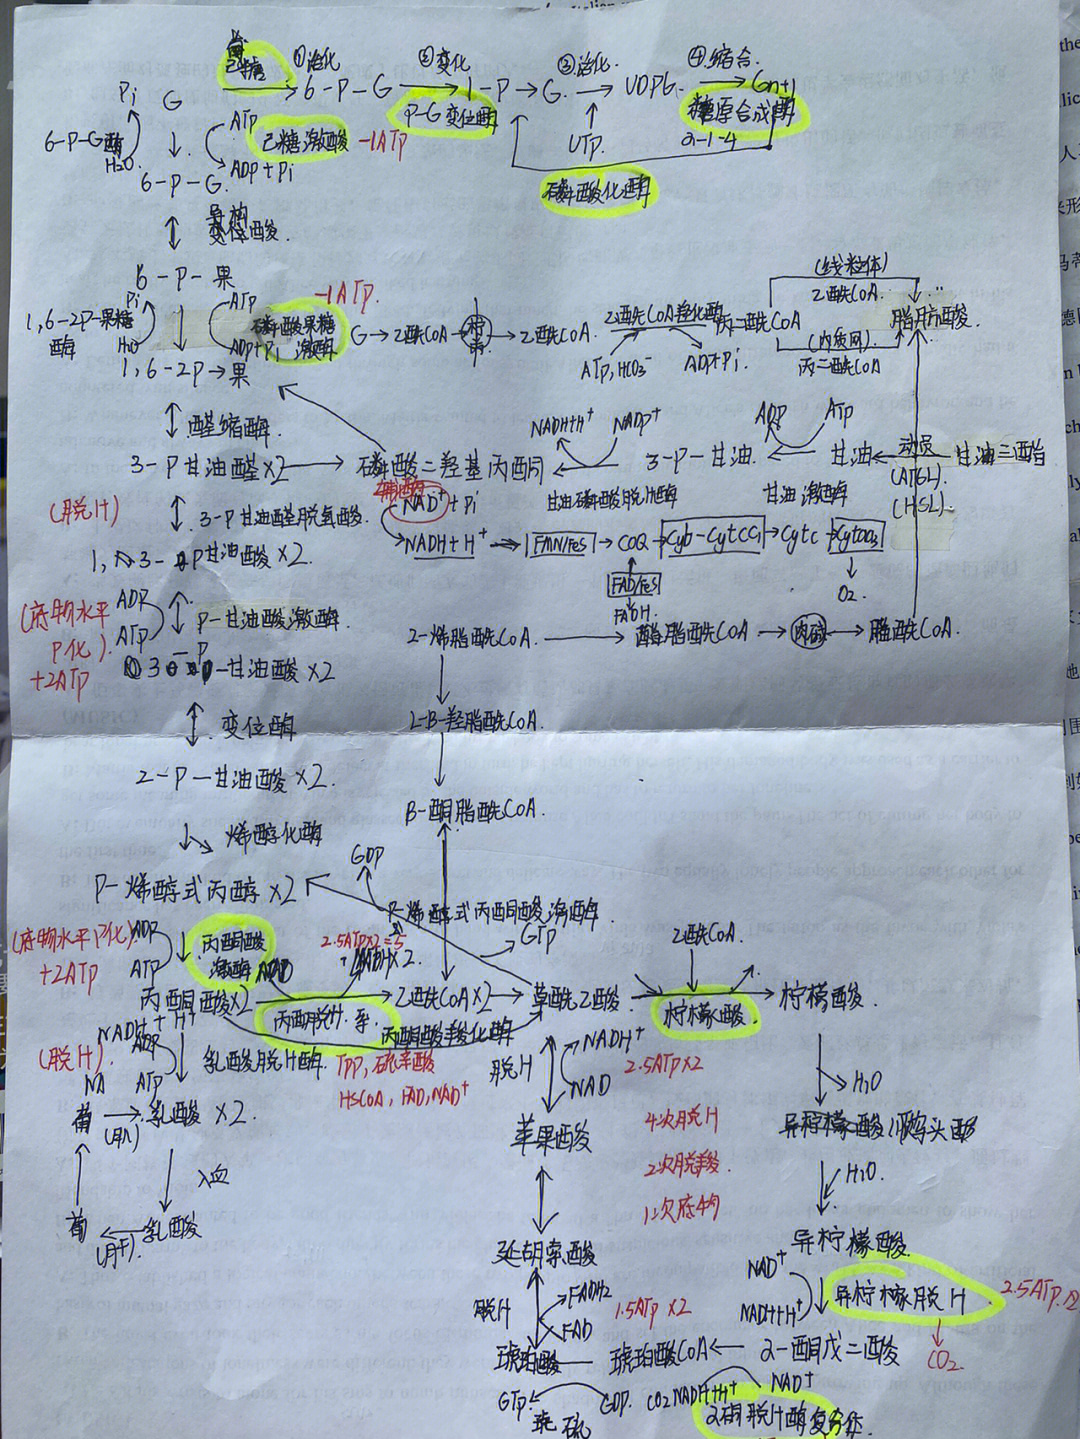 ①活化
②变化
③活化
④缩合
Pi
G
6-P-G
1-P→G
UDPG
Gn+1
ATP
己糖激酶
-1ATP
P-G变位酶
UTP
糖原合成酶
α-1-4
磷酸化酶
6-P-G酶
H2O
ADP+Pi
6-P-G.
异构
变位酸.
6-P-果
Pi
ATP
-1ATP.
1,6-2P-果糖
酶
H2O
ADP+Pi
磷酸果糖
激酶
1,6-2P→果
G→乙酰CoA
乙酰CoA.
乙酰CoA羧化酶
丙二酰CoA
ATP,HCO3⁻
ADP+Pi.
(线粒体)
乙酰CoA.
(内质网)
丙二酰CoA
脂肪酸.
醛缩酶
3-P甘油醛×2
磷酸二羟基丙酮
NADH+H⁺
NADP⁺
甘油磷酸脱H酶
3-P-甘油.
ADP
ATP
甘油激酶
甘油
动员
(ATGL).
(HSL).
甘油三酯
(脱H)
3-P甘油醛脱氢酸.
辅酶
NAD⁺+Pi
NADH+H⁺
FMN/FeS
COQ
Cyb-CytCC1
Cytc
Cytaa3
O2.
FAD/FeS
FADH.
1,3-P甘油酸×2.
(底物水平
P化).
+2ATP
ADP
ATP
P-甘油酸激酶.
3-P-甘油酸×2
变位酶
2-P-甘油酸×2.
烯醇化酶
P-烯醇式丙醇×2
2-烯脂酰CoA.
酯脂酰CoA
肉碱
脂酰CoA.
L-β-羟脂酰CoA.
β-酮脂酰CoA.
GDP
P-烯醇式丙酮酸激酶.
GTP
(底物水平P化).
+2ATP
ADP
ATP
丙酮酸
激酶
2.5ATP×2=5
NADH×2.
丙酮酸×2
丙酮脱H.系
乙酰CoA×2
丙酮酸羧化酶
草酰乙酸
乙酰CoA.
柠檬酸
柠檬酸.
(脱H).
NADH+H⁺
ADP
ATP
乳酸脱H酶.
TPP,硫辛酸
HSCoA,FAD,NAD⁺
葡
(肌)
乳酸×2.
入血
葡
(肝).
乳酸
脱H
NADH⁺
NAD
2.5ATP×2
苹果酸
4次脱H
2次脱羧.
1次底物
H2O
异柠檬酸
H2O.
异柠檬酸.
延胡索酸
脱H
FADH2
FAD
1.5ATP×2
NAD⁺
NADH+H⁺
异柠檬脱H
2.5ATP.
CO2.
琥珀酸
琥珀酸CoA
2-酮戊二酸
GTP
GDP.
琥硫
CO2 NADH+H⁺
NAD⁺
2酮脱H酶复合体.